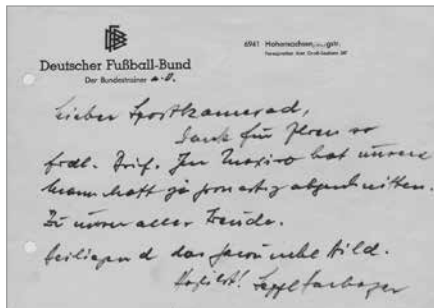 DFB
Deutscher Fußball-Bund
Der Bundestrainer a. D.
6941 Hohensachsen,
Lieber Sportkamerad,
Dank für Ihren so
frdl. Brief. In Mexiko hat unsere
Mannschaft ja großartig abgeschnitten.
Zu unser aller Freude.
Beiliegend das gewünschte Bild.
Herzlichst!